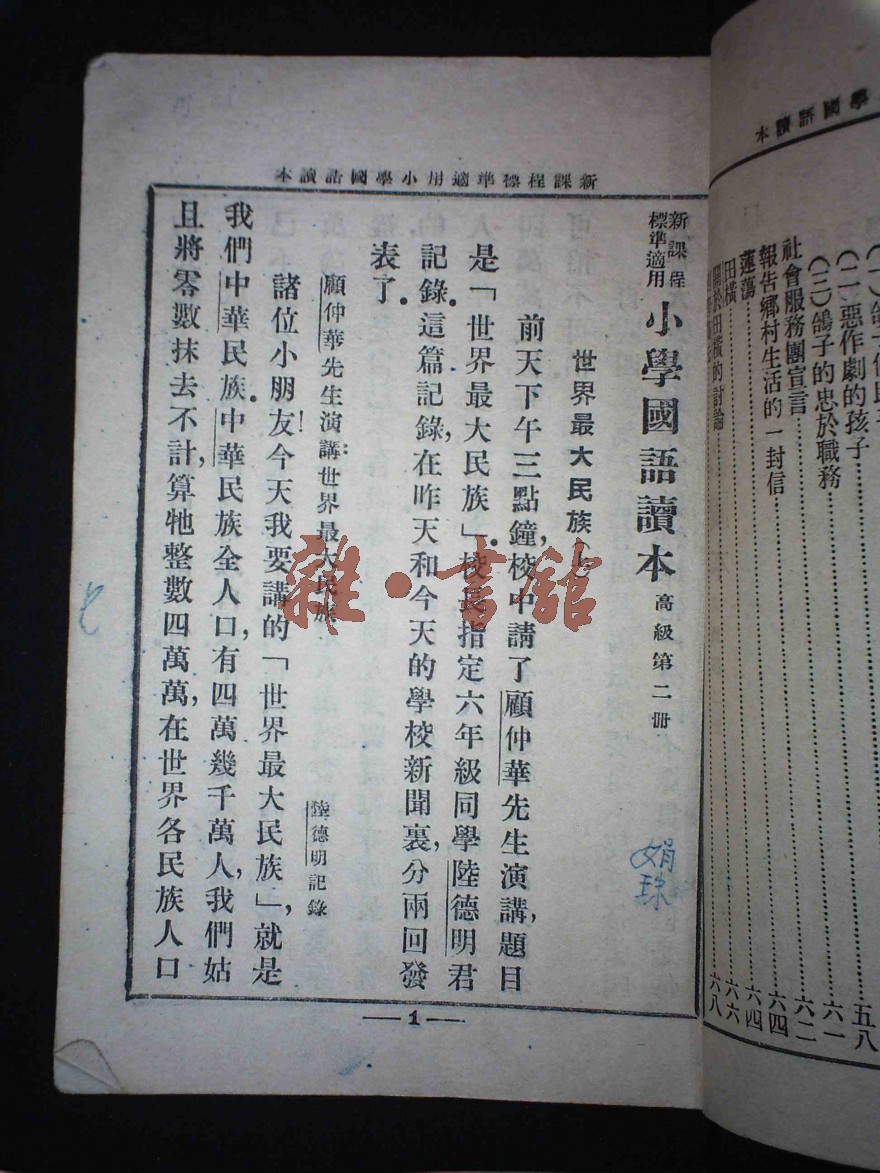 學國語讀本
新課程標準適用小學國語讀本
(二)惡作劇的孩子……六一
(三)鴿子的忠於職務……六二
社會服務團宣言……六四
報告鄉村生活的一封信……六四
蓮蕩……六六
田橫……六八
新課程
標準適用
小學國語讀本 高級第二册
世界最大民族(上)
前天下午三點鐘,校中請了顧仲華先生演講,題目
是「世界最大民族」。校長指定六年級同學陸德明君
記錄。這篇記錄,在昨天和今天的學校新聞裏,分兩回發
表了。
顧仲華先生演講:世界最大民族
陸德明記錄
諸位小朋友!今天我要講的「世界最大民族」,就是
我們中華民族。中華民族全人口,有四萬萬幾千萬人,我們姑
且將零數抹去不計,算牠整數四萬萬,在世界各民族人口
1
娟珠
雜·書館